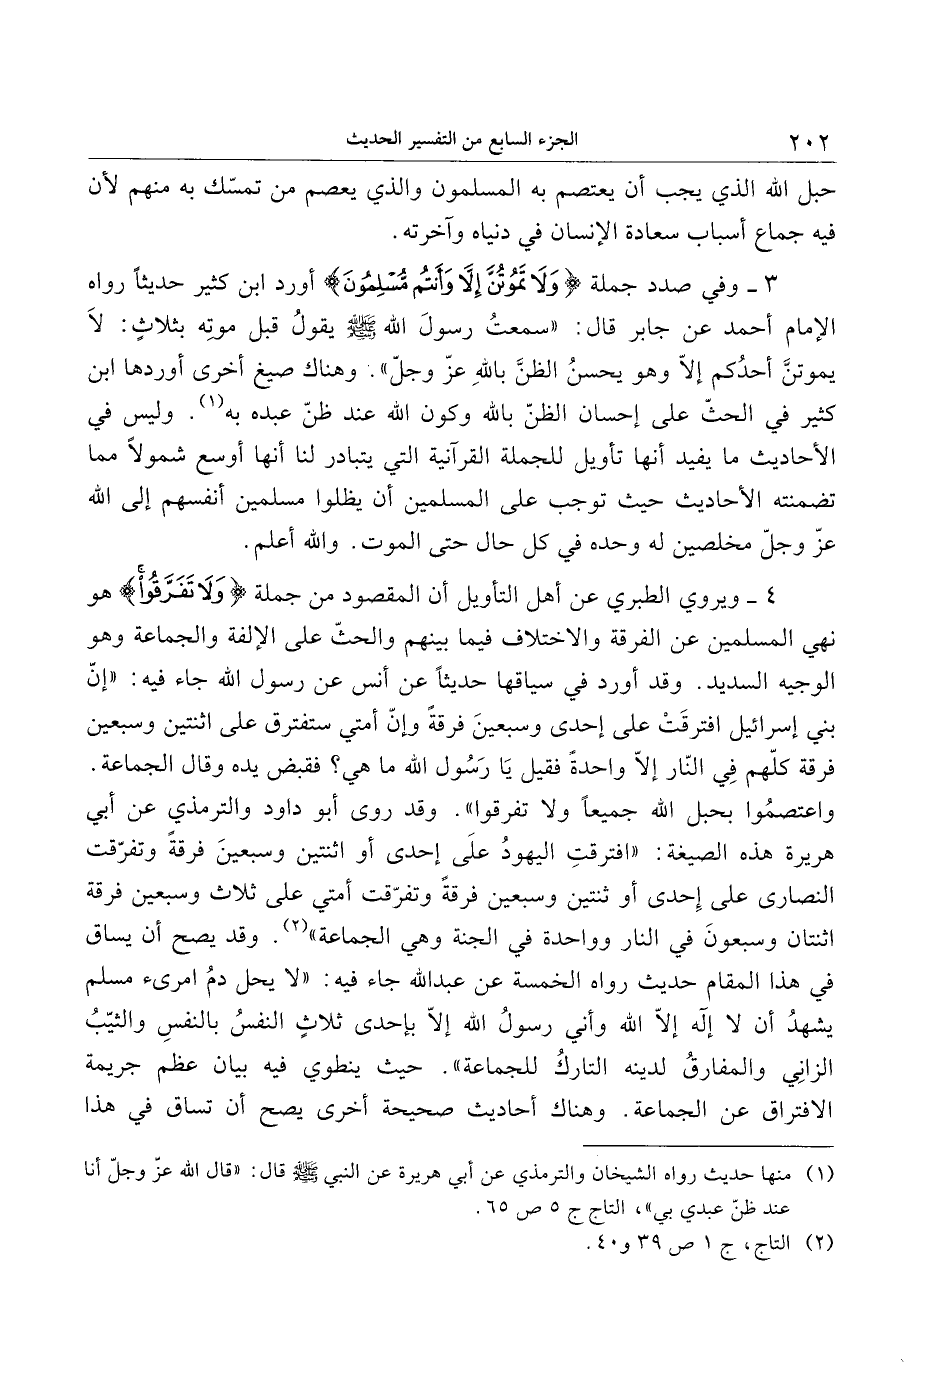 ٢٠٢ الجزء السابع من التفسير الحديث
حبل الله الذي يجب أن يعتصم به المسلمون والذي يعصم من تمسّك به منهم لأن
فيه جماع أسباب سعادة الإنسان في دنياه وآخرته.
٣ ـ وفي صدد جملة ﴿وَلَا تَمُوتُنَّ إِلَّا وَأَنتُم مُّسْلِمُونَ﴾ أورد ابن كثير حديثاً رواه
الإمام أحمد عن جابر قال: «سمعتُ رسولَ الله ﷺ يقولُ قبل موتِه بثلاثٍ: لاَ
يموتنَّ أحدُكم إلاّ وهو يحسنُ الظنَّ باللهِ عزّ وجلّ». وهناك صيغ أخرى أوردها ابن
كثير في الحثّ على إحسان الظنّ بالله وكون الله عند ظنّ عبده به(١). وليس في
الأحاديث ما يفيد أنها تأويل للجملة القرآنية التي يتبادر لنا أنها أوسع شمولاً مما
تضمنته الأحاديث حيث توجب على المسلمين أن يظلوا مسلمين أنفسهم إلى الله
عزّ وجلّ مخلصين له وحده في كل حال حتى الموت. والله أعلم.
٤ ـ ويروي الطبري عن أهل التأويل أن المقصود من جملة ﴿وَلَا تَفَرَّقُواْ﴾ هو
نهي المسلمين عن الفرقة والاختلاف فيما بينهم والحثّ على الإلفة والجماعة وهو
الوجيه السديد. وقد أورد في سياقها حديثاً عن أنس عن رسول الله جاء فيه: «إنّ
بني إسرائيل افترقَتْ على إحدى وسبعينَ فرقةً وإنّ أمتي ستفترق على اثنتين وسبعين
فرقة كلّهم فِي النّار إلاّ واحدةً فقيل يَا رَسُول الله ما هي؟ فقبض يده وقال الجماعة.
واعتصمُوا بحبل الله جميعاً ولا تفرقوا». وقد روى أبو داود والترمذي عن أبي
هريرة هذه الصيغة: «افترقتِ اليهودُ علَى إحدى أو اثنتين وسبعينَ فرقةً وتفرّقت
النصارى على إحدى أو ثنتين وسبعين فرقةً وتفرّقت أمتي على ثلاث وسبعين فرقة
اثنتان وسبعونَ في النار وواحدة في الجنة وهي الجماعة»(٢). وقد يصح أن يساق
في هذا المقام حديث رواه الخمسة عن عبدالله جاء فيه: «لا يحل دمُ امرىء مسلم
يشهدُ أن لا إلَه إلاّ الله وأني رسولُ الله إلاّ بإحدى ثلاثٍ النفسُ بالنفسِ والثيّبُ
الزانِي والمفارقُ لدينه التاركُ للجماعة». حيث ينطوي فيه بيان عظم جريمة
الافتراق عن الجماعة. وهناك أحاديث صحيحة أخرى يصح أن تساق في هذا
(١) منها حديث رواه الشيخان والترمذي عن أبي هريرة عن النبي ﷺ قال: «قال الله عزّ وجلّ أنا
عند ظنّ عبدي بي»، التاج ج ٥ ص ٦٥.
(٢) التاج، ج ١ ص ٣٩ و٤٠.